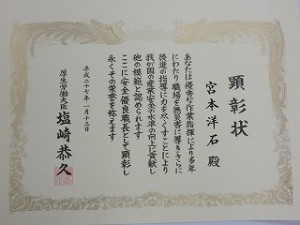 顕彰状
宮本洋石 殿
あなたは優秀な作業指揮により多年
にわたり職場を無災害に導きさらに
後進の指導に力を尽くすことにより
我が国の産業安全の水準の向上に貢献し
他の模範と認められます
ここに安全優良職長として顕彰し
永くその栄誉を称えます
平成二十七年一月十三日
厚生労働大臣 塩崎恭久